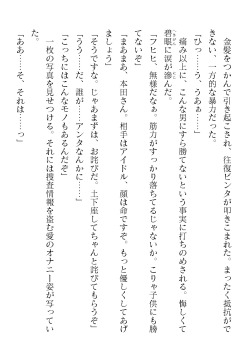 金髪をつかんで引き起こされ、往復ビンタが叩きこまれた。まったく抵抗がで
きない、一方的な暴力だった。
「ひっ……う、うあ……」
痛み以上に、こんな男にすら勝てないという事実に打ちのめされる。悔しくて
碧眼に涙が滲んだ。
「フヒヒ、無様だなぁ。筋力がすっかり落ちてるじゃないか。こりゃ子供にも勝
てないぞ」
「まあまあ、本田さん。相手はアイドル、顔は命ですぞ。もっと優しくしてあげ
ましょう」
「そうですな。じゃあまずは、お詫びだ。土下座してちゃんと詫びてもらうぞ」
「うう……だ、誰が……アンタなんかに……」
「こっちにはこんなモノもあるんだぞ」
一枚の写真を見せつける。それには捜査情報を盗む愛のオナニー姿が写ってい
た。
「ああ……そ、それは……っ」